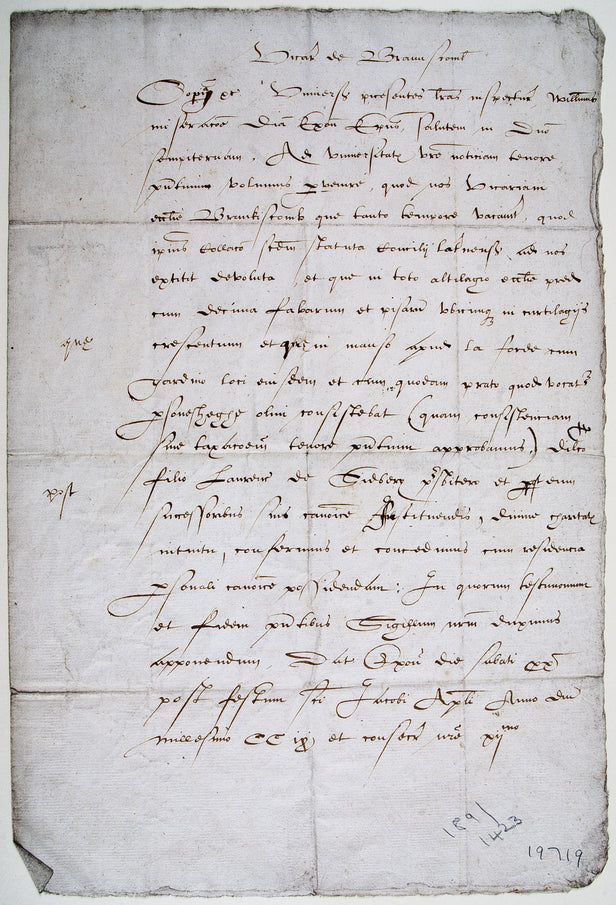 Vicar de Brauuscomb
Copia &c Universis presentes lras inspectur Willmus
miseracoe Dia Exon Epus, salutem in Dno
sempiternam. Ad universitat vre noticiam tenore
pntium volumus pervenire, quod nos Vicariam
ecclie Brantiscomb que tanto tempore vacavit, quod
ipius Collaco scdm statuta Concilij latnens, ad nos
extitit devoluta, et que in toto altilagio ecclie pred
cum decima fabarum et pisaru ubicunq in curtilagijs
que
crescentium et que in manso apud la forde cum
gardino loci eiusdem et cum quodam prato quod vocat
psonesheghe olim consistebat (quam consistenciam
sive taxacoem tenore pntium approbamus) dilco
filio Laurenc de Sidbery prsbitero et post eum
post
successoribus suis canonice Instituendis, divine charitat
intuitu, conferimus et concedimus cum residencia
psonali canonice possidendam: In quorum testimonium
et fidem pntibus Sigillum nrm duximus
apponendum. Dat Exon die sabati
post festum Sci Jacobi Apli Anno dni
millesimo CC et consecr nre xij mo
189/
1423
19719